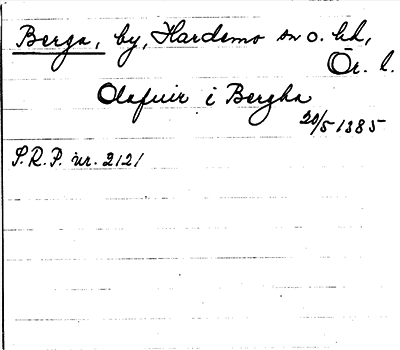 Berga, by, Hardemo sn o. hd,
Ör. l.
Olafuir i Bergha
20/5 1385
S.R.P. nr. 2121